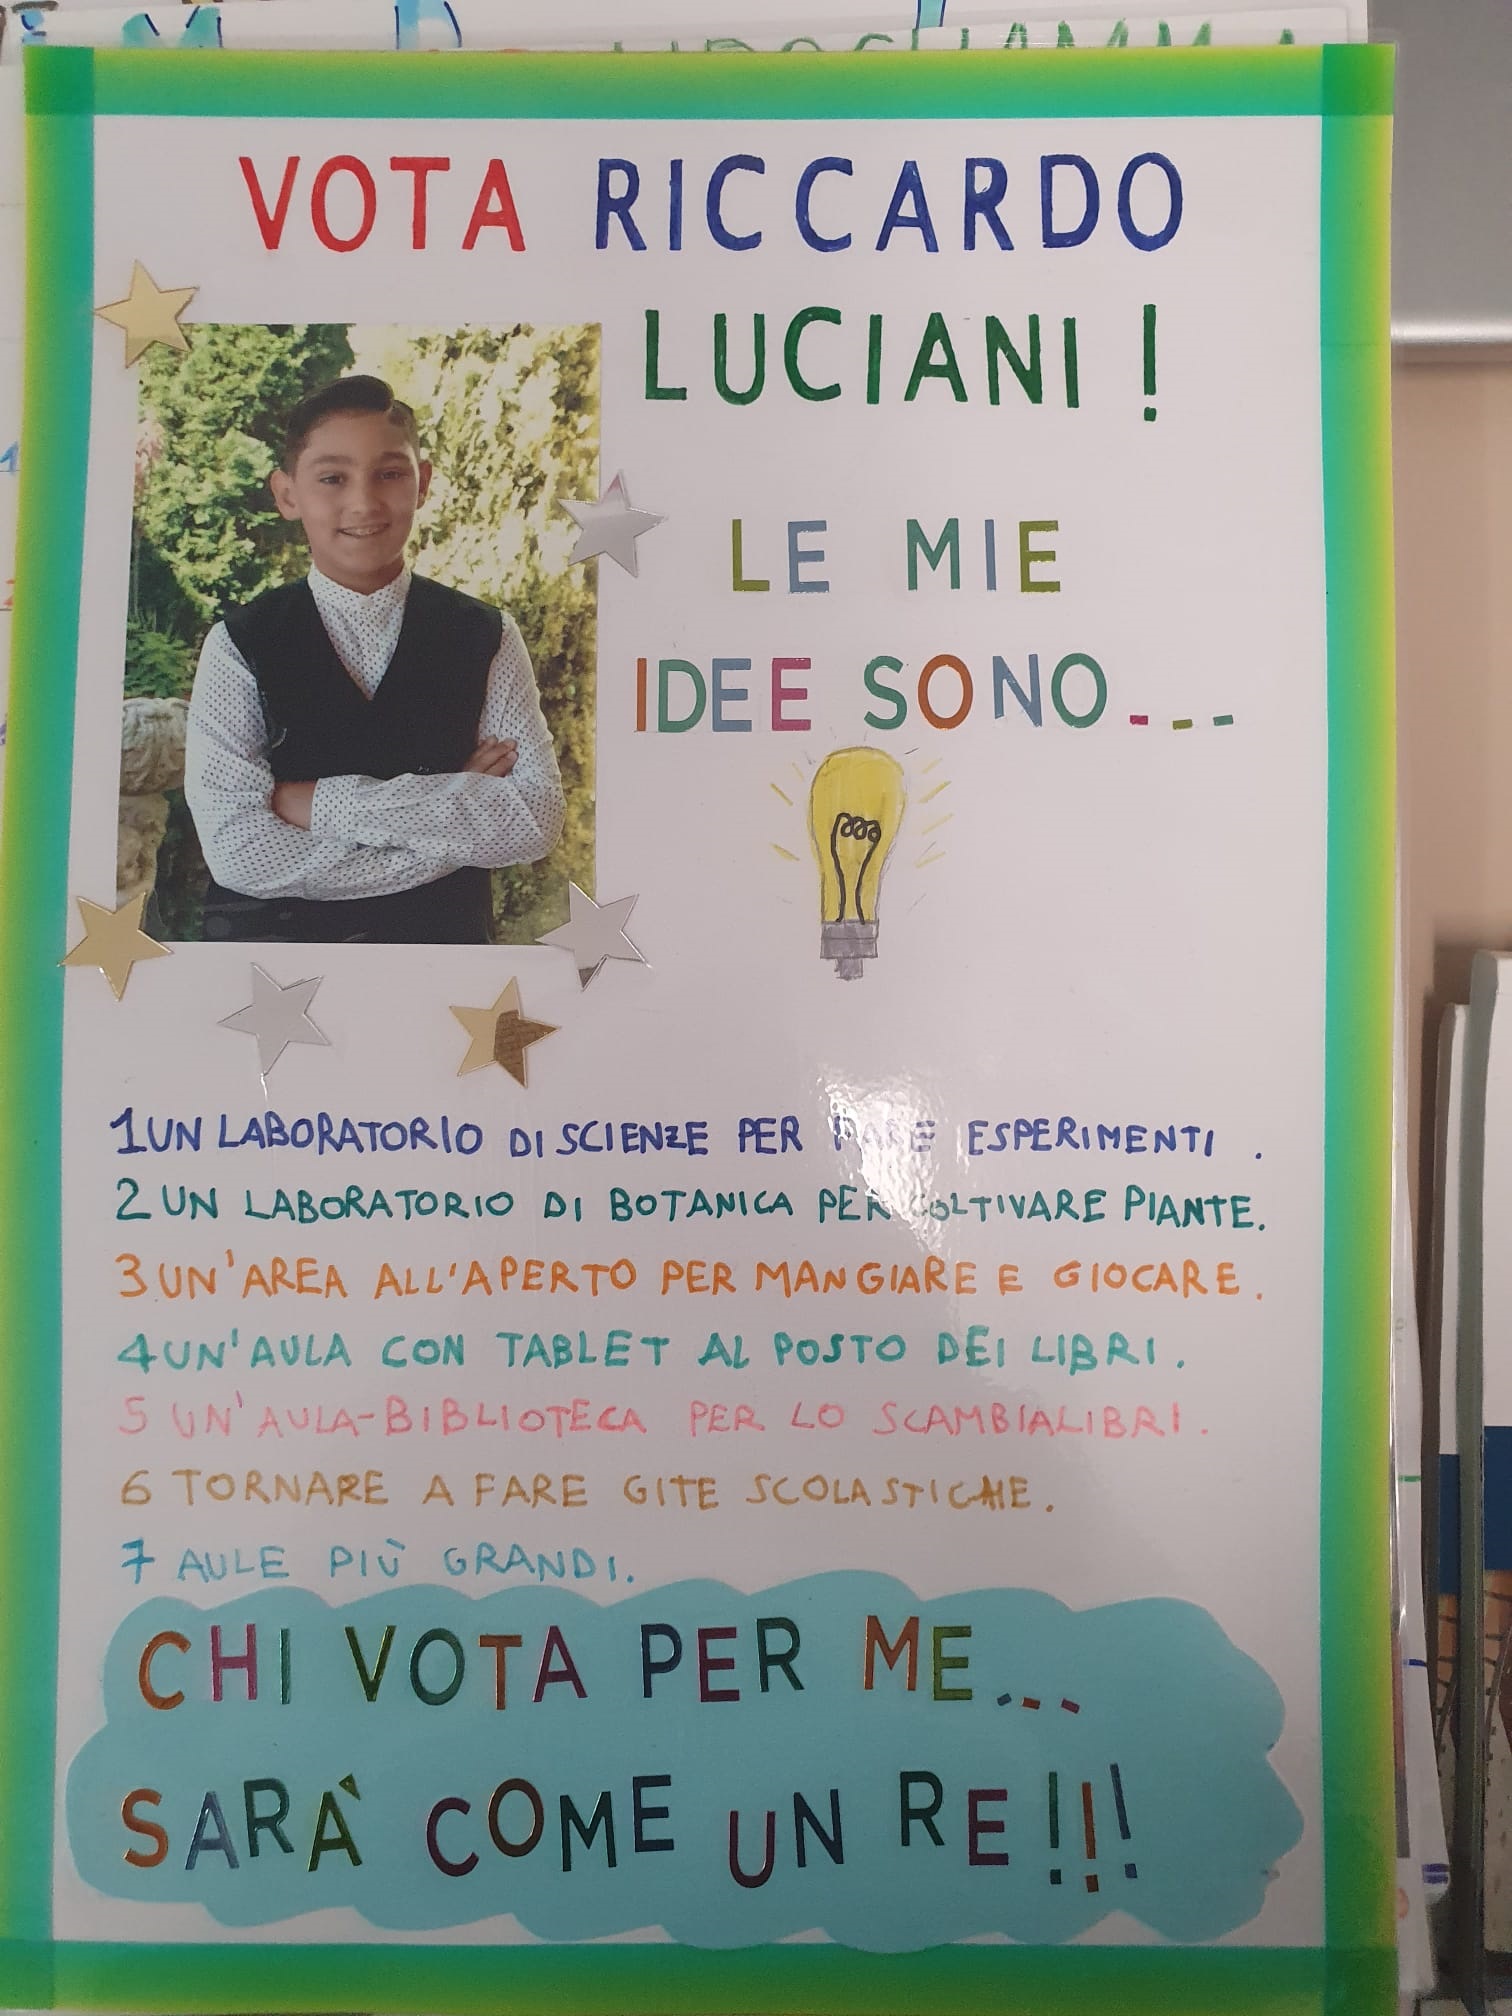 VOTA RICCARDO
LUCIANI !
LE MIE
IDEE SONO...
1 UN LABORATORIO DI SCIENZE PER FARE ESPERIMENTI .
2 UN LABORATORIO DI BOTANICA PER COLTIVARE PIANTE.
3 UN'AREA ALL'APERTO PER MANGIARE E GIOCARE .
4 UN'AULA CON TABLET AL POSTO DEI LIBRI .
5 UN'AULA-BIBLIOTECA PER LO SCAMBIALIBRI .
6 TORNARE A FARE GITE SCOLASTICHE .
7 AULE PIÙ GRANDI.
CHI VOTA PER ME...
SARÀ COME UN RE!!!